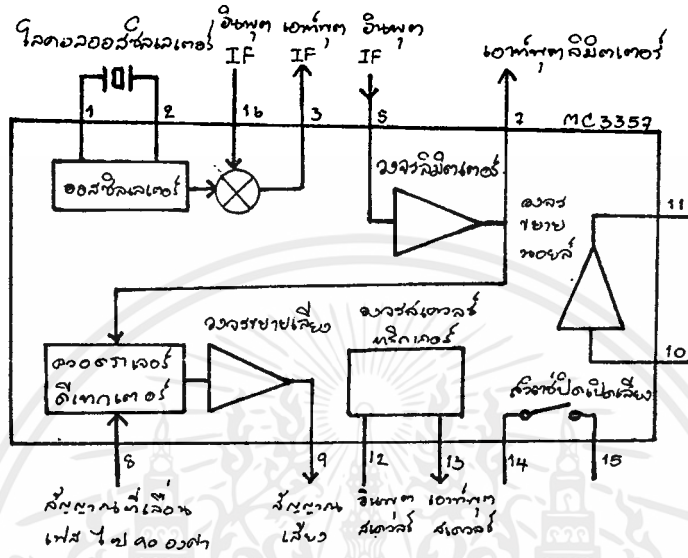 โลคอลออสซิลเลเตอร์
อินพุต เอาท์พุต อินพุต
IF IF IF
เอาท์พุตลิมิตเตอร์
1 2 16 3 5 7 MC3357
ออสซิลเลเตอร์
วงจรลิมิตเตอร์
วงจร
ขยาย
นอยส์
11
10
วงจรขยายเสียง
ควอดราเจอร์
ดีเทกเตอร์
วงจรสเควลช์
ทริกเกอร์
สวิตช์ปิดเปิดเสียง
8 9 12 13 14 15
สัญญาณที่เลื่อน
เฟส ไป 90 องศา
สัญญาณ
เสียง
อินพุต
สเควลช์
เอาท์พุต
สเควลช์